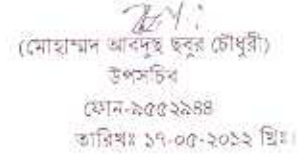 (মোহাম্মদ আবদুছ ছবুর চৌধুরী)
উপসচিব
ফোন-৯৫৫২৯৪৪
তারিখঃ ১৭-০৫-২০১২ খ্রিঃ।